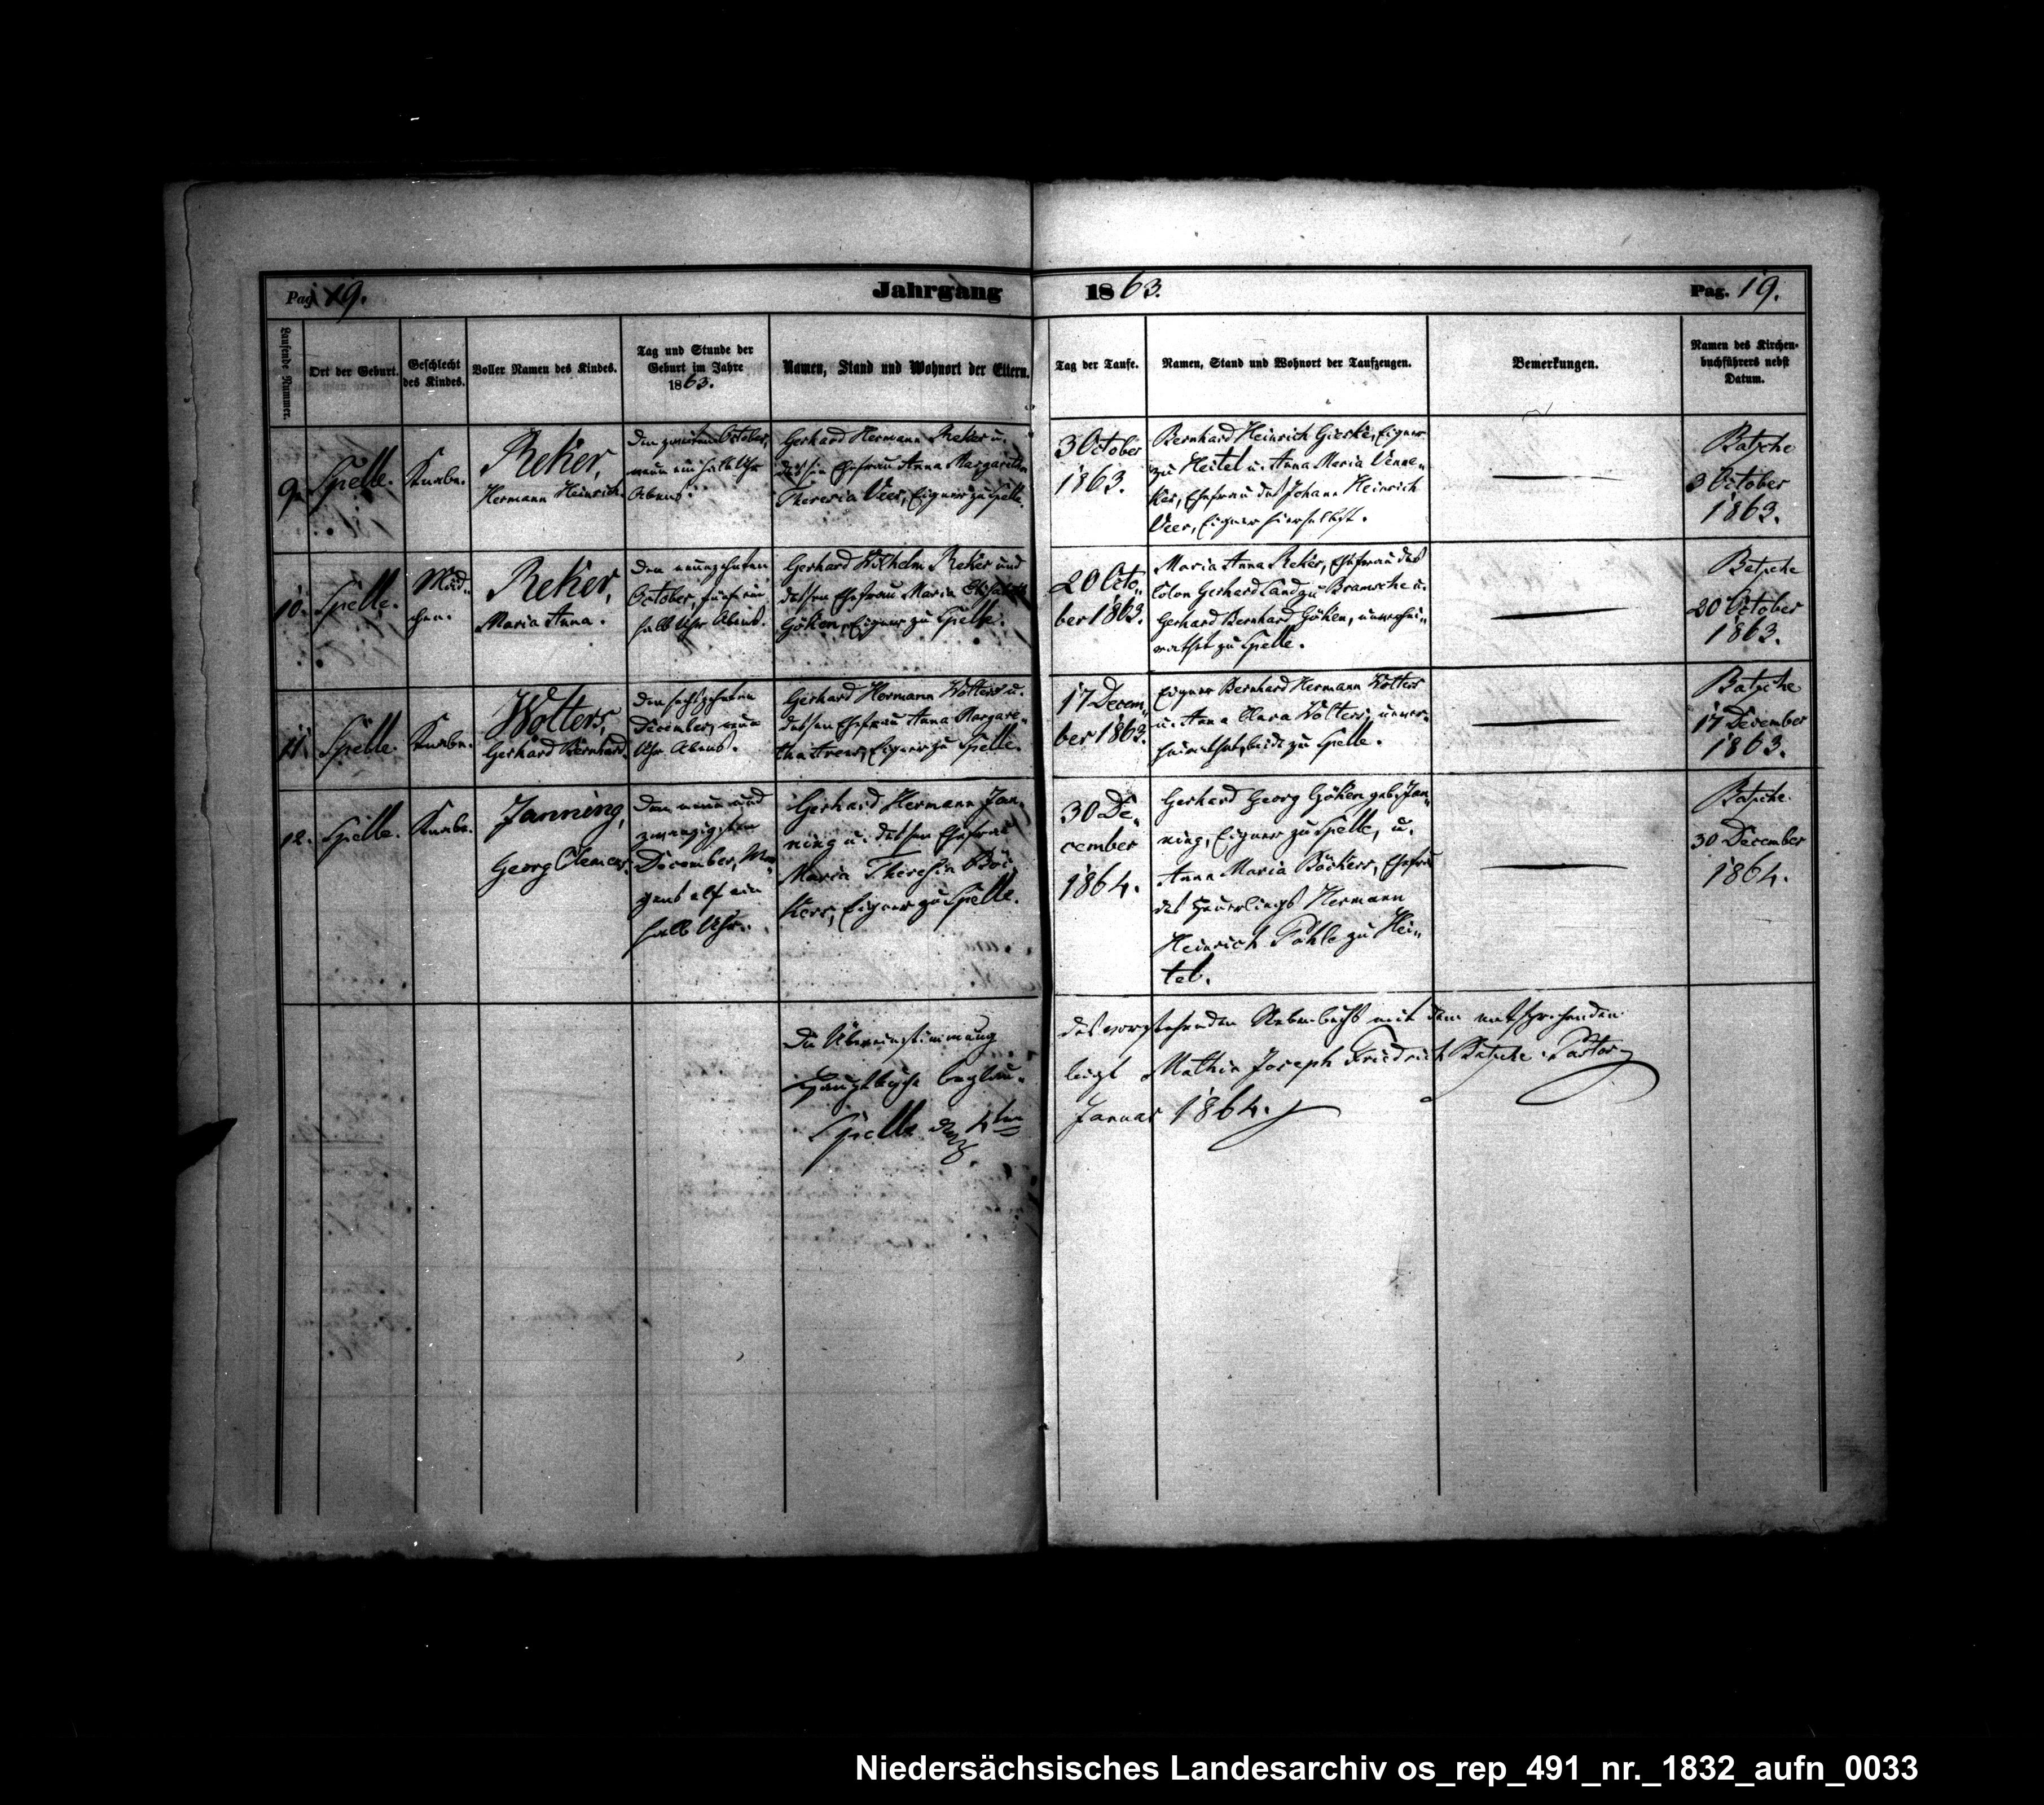 Pag. 19.
Jahrgang 1863.
Pag. 19.
Laufende Nummer.
Ort der Geburt.
Geschlecht
des Kindes.
Voller Namen des Kindes.
Tag und Stunde der
Geburt im Jahre
1863.
Namen, Stand und Wohnort der Eltern.
Tag der Taufe.
Namen, Stand und Wohnort der Taufzeugen.
Bemerkungen.
Namen des Kirchen-
buchführers nebst
Datum.
9.
Spelle.
Knabe.
Reker,
Hermann Heinrich.
Den zweiten October,
neun ein halb Uhr
Abends.
Gerhard Hermann Reker u.
dessen Ehefrau Anna Margaretha
Theresia Veer, Eigner zu Spelle.
3 October
1863.
Bernhard Heinrich Gierke, Eigner
zu Heitel u. Anna Maria Venne-
ker, Ehefrau des Johann Heinrich
Veer, Eigner hierselbst.
Batsche
3 October
1863.
10.
Spelle.
Mäd-
chen.
Reker,
Maria Anna.
Den neunzehnten
October, fünf ein
halb Uhr Abends.
Gerhard Wilhelm Reker und
dessen Ehefrau Maria Elisabeth
Göken, Eigner zu Spelle.
20 Octo-
ber 1863.
Maria Anna Reker, Ehefrau des
Colon Gerhard Land zu Bramsche u.
Gerhard Bernhard Göken, unverhei-
rathet zu Spelle.
Batsche
20 October
1863.
11.
Spelle.
Knabe.
Wolters,
Gerhard Bernhard.
Den sechszehnten
December, neun
Uhr Abends.
Gerhard Hermann Wolters u.
dessen Ehefrau Anna Margare-
tha Arens, Eigner zu Spelle.
17 Decem-
ber 1863.
Eigner Bernhard Hermann Wolters
u. Anna Clara Wolters, unver-
heirathet, beide zu Spelle.
Batsche
17 December
1863.
12.
Spelle.
Knabe.
Janning,
Georg Clemens.
Den neun und
zwanzigsten
December, Mor-
gens elf ein
halb Uhr.
Gerhard Hermann Jan-
ning u. dessen Ehefrau
Maria Theresia Bö-
kers, Eigner zu Spelle.
30 De-
cember
1864.
Gerhard Georg Göken geb. Jan-
ning, Eigner zu Spelle, u.
Anna Maria Böckers, Ehefrau
des Heuerlings Hermann
Heinrich Pöhle zu Hei-
tel.
Batsche.
30 December
1864.
Die Übereinstimmung des vorstehenden Nebenbuchs mit dem entsprechenden
Hauptbuche beglau- bigt Mathis Joseph Friedrich Batsche Pastor
Spelle den 4ten Januar 1864.
Niedersächsisches Landesarchiv os_rep_491_nr._1832_aufn_0033